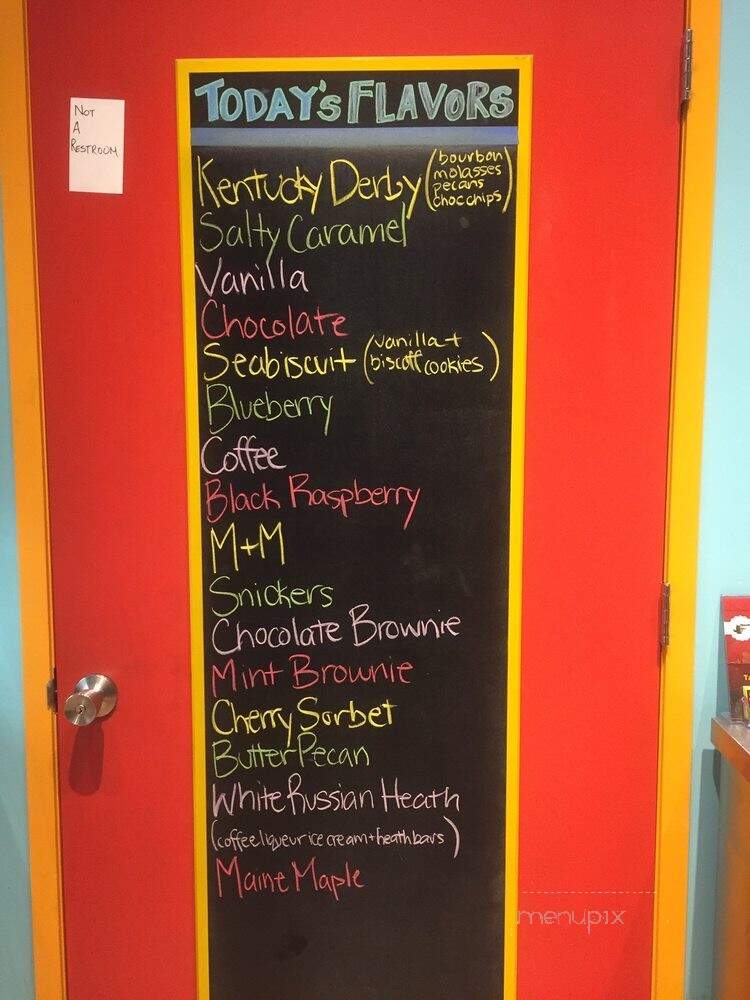 NOT
A
RESTROOM
TODAY'S FLAVORS
Kentucky Derby (bourbon
molasses
pecans
choc chips)
Salty Caramel
Vanilla
Chocolate
Seabiscuit (vanilla +
biscoff cookies)
Blueberry
Coffee
Black Raspberry
M+M
Snickers
Chocolate Brownie
Mint Brownie
Cherry Sorbet
Butter Pecan
White Russian Heath
(coffee liqueur ice cream + heath bars)
Maine Maple
menupix